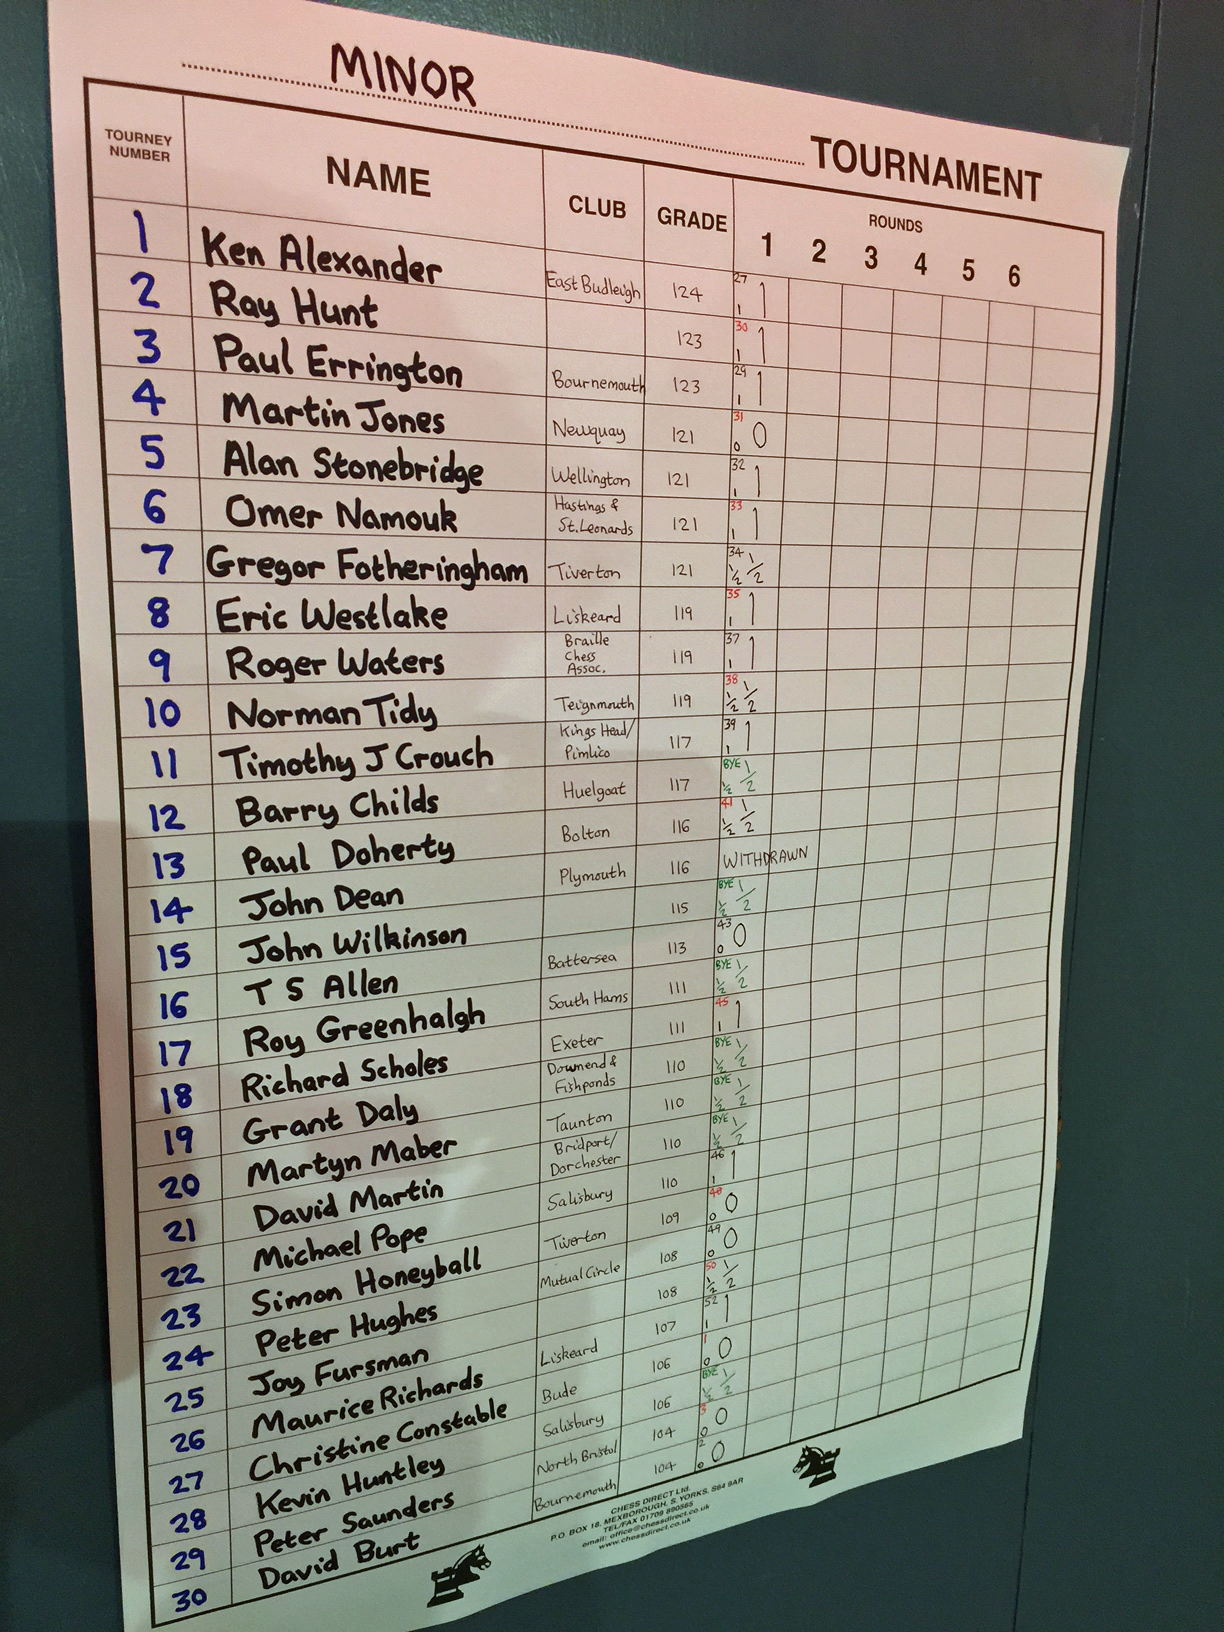 MINOR TOURNAMENT
TOURNEY NUMBER NAME CLUB GRADE ROUNDS
1 2 3 4 5 6
1 Ken Alexander East Budleigh 124 27 1 1
2 Ray Hunt 123 30 1 1
3 Paul Errington Bournemouth 123 29 1 1
4 Martin Jones Newquay 121 31 0 0
5 Alan Stonebridge Wellington 121 32 1 1
6 Omer Namouk Hastings & St.Leonards 121 33 1 1
7 Gregor Fotheringham Tiverton 121 34 ½ ½
8 Eric Westlake Liskeard 119 35 1 1
9 Roger Waters Braille Chess Assoc. 119 37 1 1
10 Norman Tidy Teignmouth 119 38 ½ ½
11 Timothy J Crouch Kings Head/ Pimlico 117 39 1 1
12 Barry Childs Huelgoat 117 BYE ½ ½
13 Paul Doherty Bolton 116 41 ½ ½
14 John Dean Plymouth 116 WITHDRAWN
15 John Wilkinson 115 BYE ½ ½
16 T S Allen Battersea 113 43 0 0
17 Roy Greenhalgh South Hams 111 BYE ½ ½
18 Richard Scholes Exeter 111 45 1 1
19 Grant Daly Downend & Fishponds 110 BYE ½ ½
20 Martyn Maber Taunton 110 BYE ½ ½
21 David Martin Bridport/ Dorchester 110 BYE ½ ½
22 Michael Pope Salisbury 110 46 1 1
23 Simon Honeyball Tiverton 109 48 0 0
24 Peter Hughes Mutual Circle 108 49 0 0
25 Joy Fursman 108 50 ½ ½
26 Maurice Richards Liskeard 107 52 1 1
27 Christine Constable Bude 106 1 0 0
28 Kevin Huntley Salisbury 106 BYE ½ ½
29 Peter Saunders North Bristol 104 3 0 0
30 David Burt Bournemouth 104 2 0 0
CHESS DIRECT Ltd.
P.O. BOX 18, MEXBOROUGH, S. YORKS, S64 9AR
TEL/FAX 01709 890565
email: office@chessdirect.co.uk
www.chessdirect.co.uk